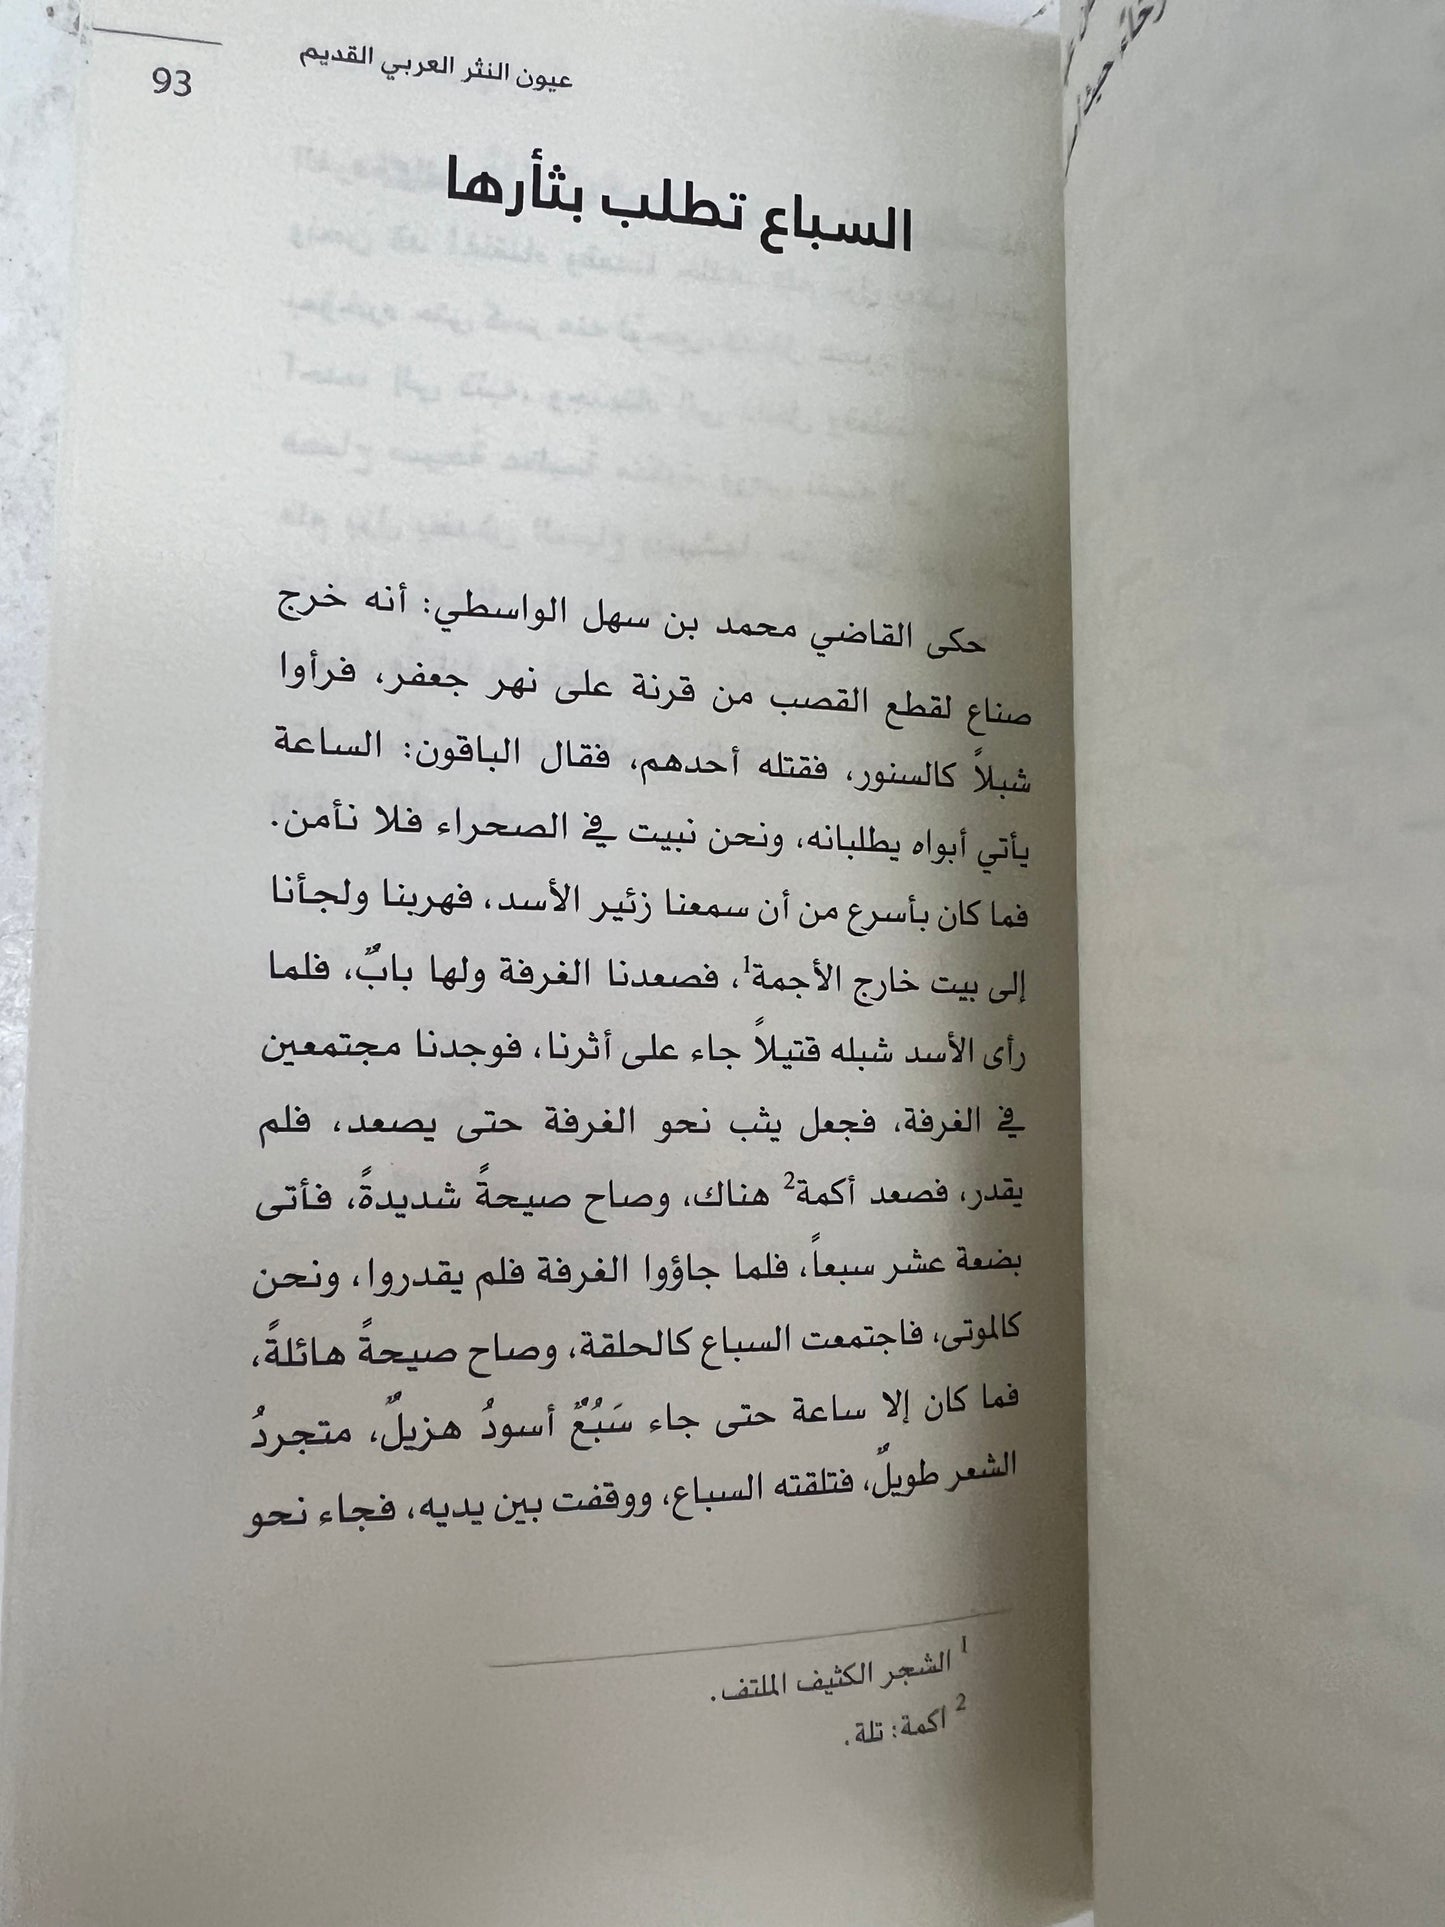 عيون النثر العربي القديم
93
السباع تطلب بثأرها
حكى القاضي محمد بن سهل الواسطي: أنه خرج
صناع لقطع القصب من قرنة على نهر جعفر، فرأوا
شبلاً كالسنور، فقتله أحدهم، فقال الباقون: الساعة
يأتي أبواه يطلبانه، ونحن نبيت في الصحراء فلا نأمن.
فما كان بأسرع من أن سمعنا زئير الأسد، فهربنا ولجأنا
إلى بيت خارج الأجمة1، فصعدنا الغرفة ولها بابٌ، فلما
رأى الأسد شبله قتيلاً جاء على أثرنا، فوجدنا مجتمعين
في الغرفة، فجعل يثب نحو الغرفة حتى يصعد، فلم
يقدر، فصعد أكمة2 هناك، وصاح صيحةً شديدةً، فأتى
بضعة عشر سبعاً، فلما جاؤوا الغرفة فلم يقدروا، ونحن
كالموتى، فاجتمعت السباع كالحلقة، وصاح صيحةً هائلةً،
فما كان إلا ساعة حتى جاء سَبُعٌ أسودُ هزيلٌ، متجردُ
الشعر طويلٌ، فتلقته السباع، ووقفت بين يديه، فجاء نحو
1 الشجر الكثيف الملتف.
2 اكمة: تلة.